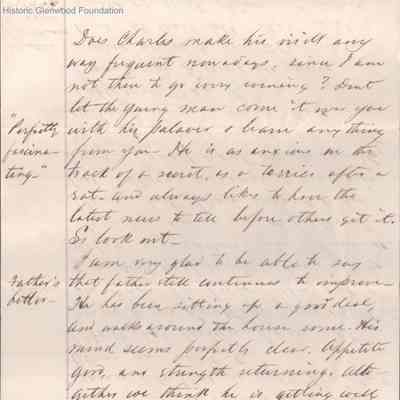 Historic Glenwood Foundation
Does Charles make his visits any
way frequent nowadays, since I am
not there to go every evening? Dont
let the young man come it over you
with his palaver & learn anything
from you. He is as anxious on the
track of a secret, as a terrier after a
rat- and always likes to have the
latest news to tell before others get it.
So look out-
"Perfectly
fascina-
ting-"
I am very glad to be able to say
that father still continues to improve-
He has been sitting up a good deal,
and walks around the house some. His
mind seems perfectly clear. Appetite
good, and strength returning. Alto-
gether we think he is getting well
Father's
better-